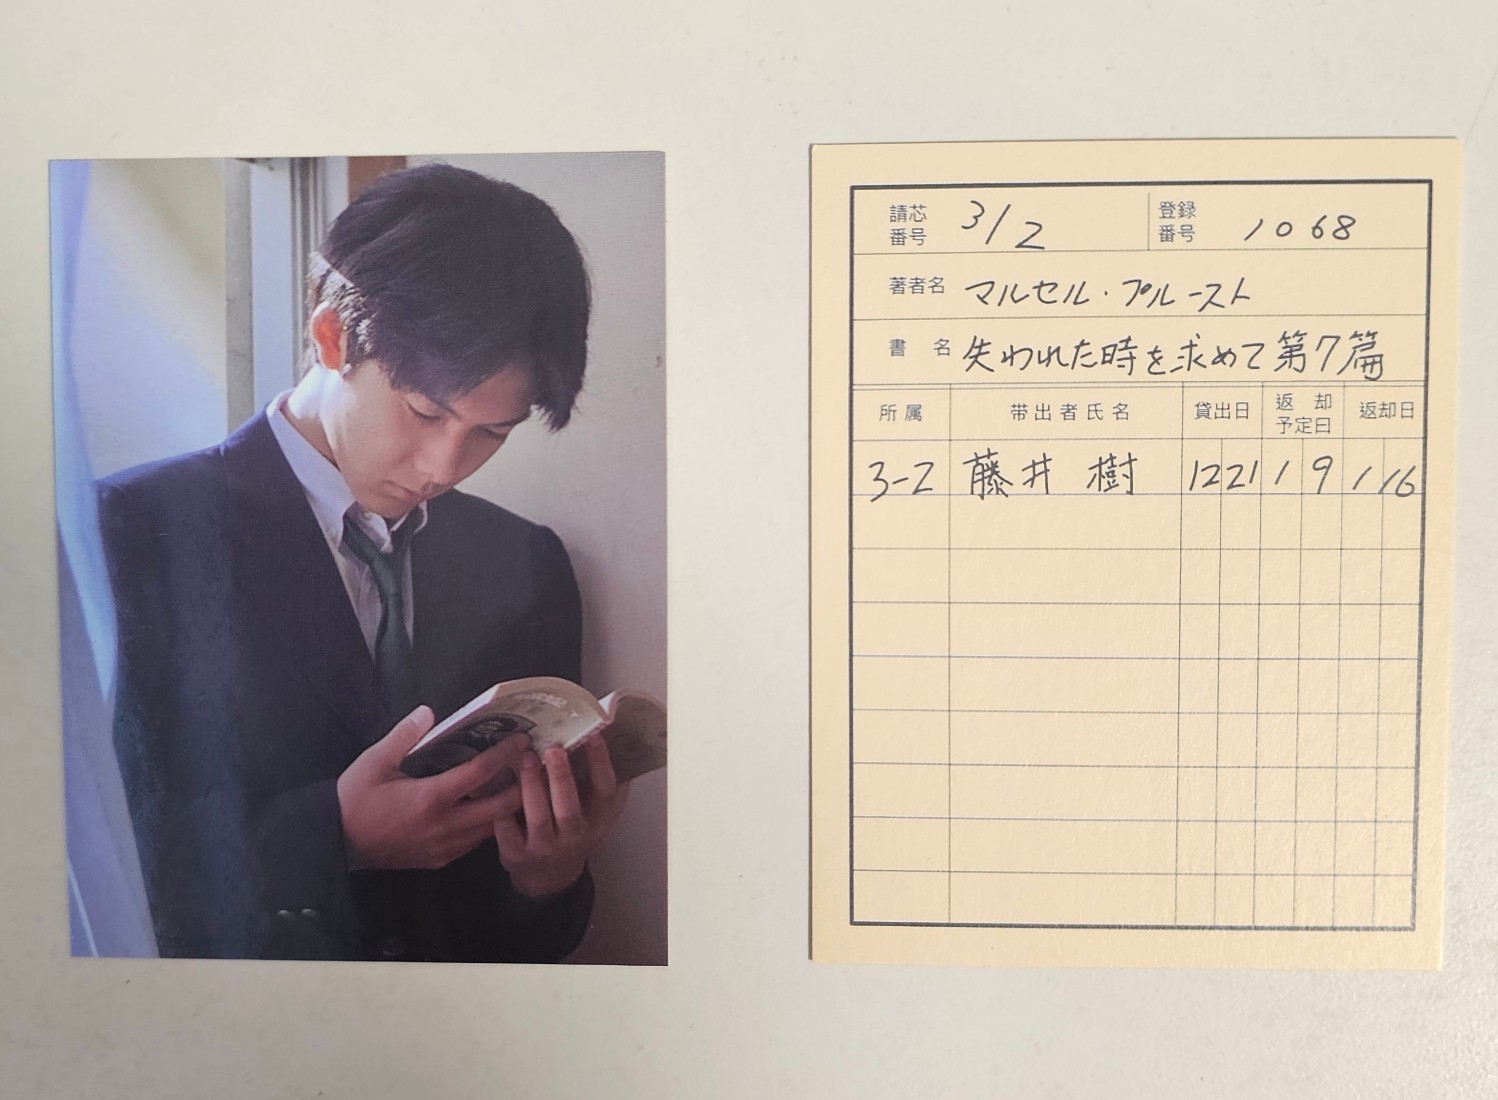 請芯番号 3/2 登録番号 1068
著者名 マルセル・プルースト
書名 失われた時を求めて第7篇
所属 帯出者氏名 貸出日 返却予定日 返却日
3-2 藤井 樹 12 21 1 9 1 16